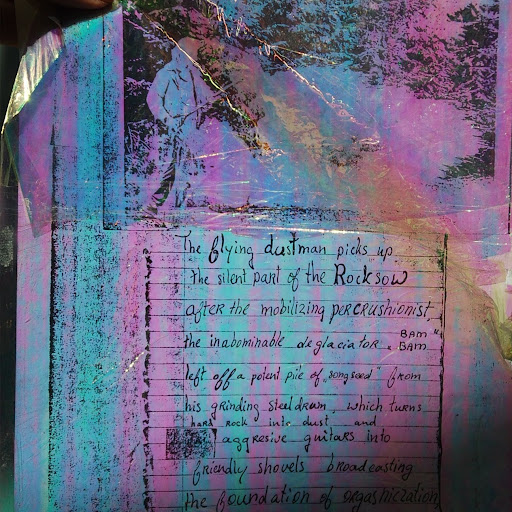 The flying dustman picks up
the silent part of the Rocksow
after the mobilizing percrushionist
the inabominable deglaciator "BAM BAM"
left off a potent pile of "songseed" from
his grinding steeldrum, which turns
hard rock into dust and
aggresive guitars into
friendly shovels broadcasting
the foundation of orgasmization